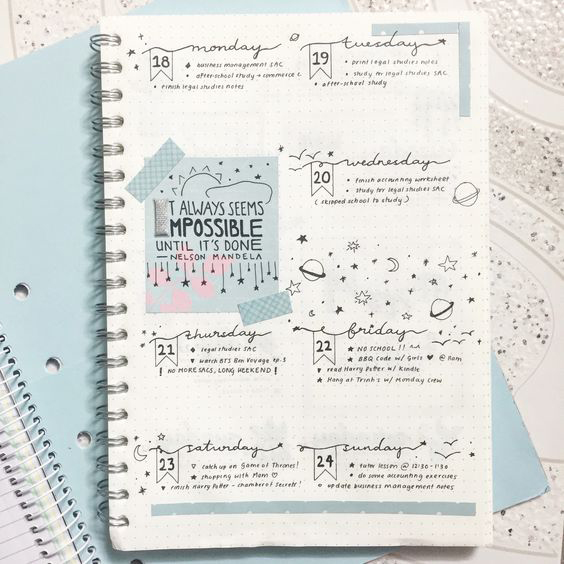 monday
18
business management SAC
after-school study → commerce c
finish legal studies notes
tuesday
19
print legal studies notes
study for legal studies SAC
after-school study
wednesday
20
finish accounting worksheet
study for legal studies SAC
(skipped school to study)
IT ALWAYS SEEMS
IMPOSSIBLE
UNTIL IT'S DONE
— NELSON MANDELA
thursday
21
legal studies SAC
watch BTS Bon Voyage ep. 3
! NO MORE SACS, LONG WEEKEND!
friday
22
NO SCHOOL !!
BBQ Code w/ Girls ♥ @ 11am
read Harry Potter w/ Kindle
Hang at Trinh's w/ Monday Crew
saturday
23
catch up on Game of Thrones!
shopping with Mom ♡
finish Harry Potter - chamber of secrets!
sunday
24
tutor lesson @ 12:30-1:30
do some accounting exercises
update business management notes